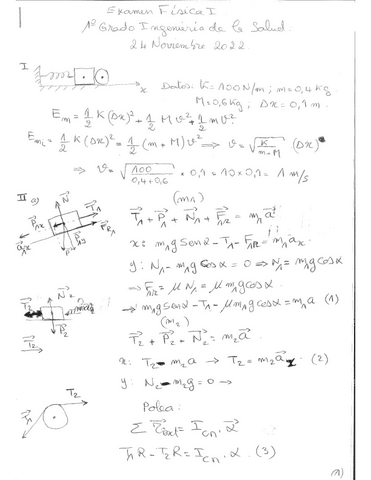 Examen Física I
1º Grado Ingeniería de la Salud.
24 Noviembre 2022.
I
x
Datos: K=100N/m; m=0,4 Kg
M=0,6Kg; Δx=0,1 m.
Em = 1/2 K(Δx)² + 1/2 M v² + 1/2 m v²
Em₁ = 1/2 K(Δx)² = 1/2 (m+M) v² ⇒ v = √(K/(m+M)) (Δx)
⇒ v = √(100/(0,4+0,6)) × 0,1 = 10×0,1 = 1 m/s
II a)
(m₁)
T₁ + P₁ + N₁ + FR = m₁ a
x: m₁g sen α - T₁ - FR = m₁ax
y: N₁ - m₁g cos α = 0 ⇒ N₁ = m₁g cos α
⇒ FR = μ N₁ = μ m₁g cos α
→ m₁g sen α - T₁ - μ m₁g cos α = m₁a (1)
(m₂)
T₂ + P₂ + N₂ = m₂ a
x: T₂ - m₂a → T₂ = m₂a (2)
y: N₂ - m₂g = 0 →
Polea:
Σ τext = Icm · α
T₁R - T₂R = Icm · α (3)
T₁
T₂
(1)